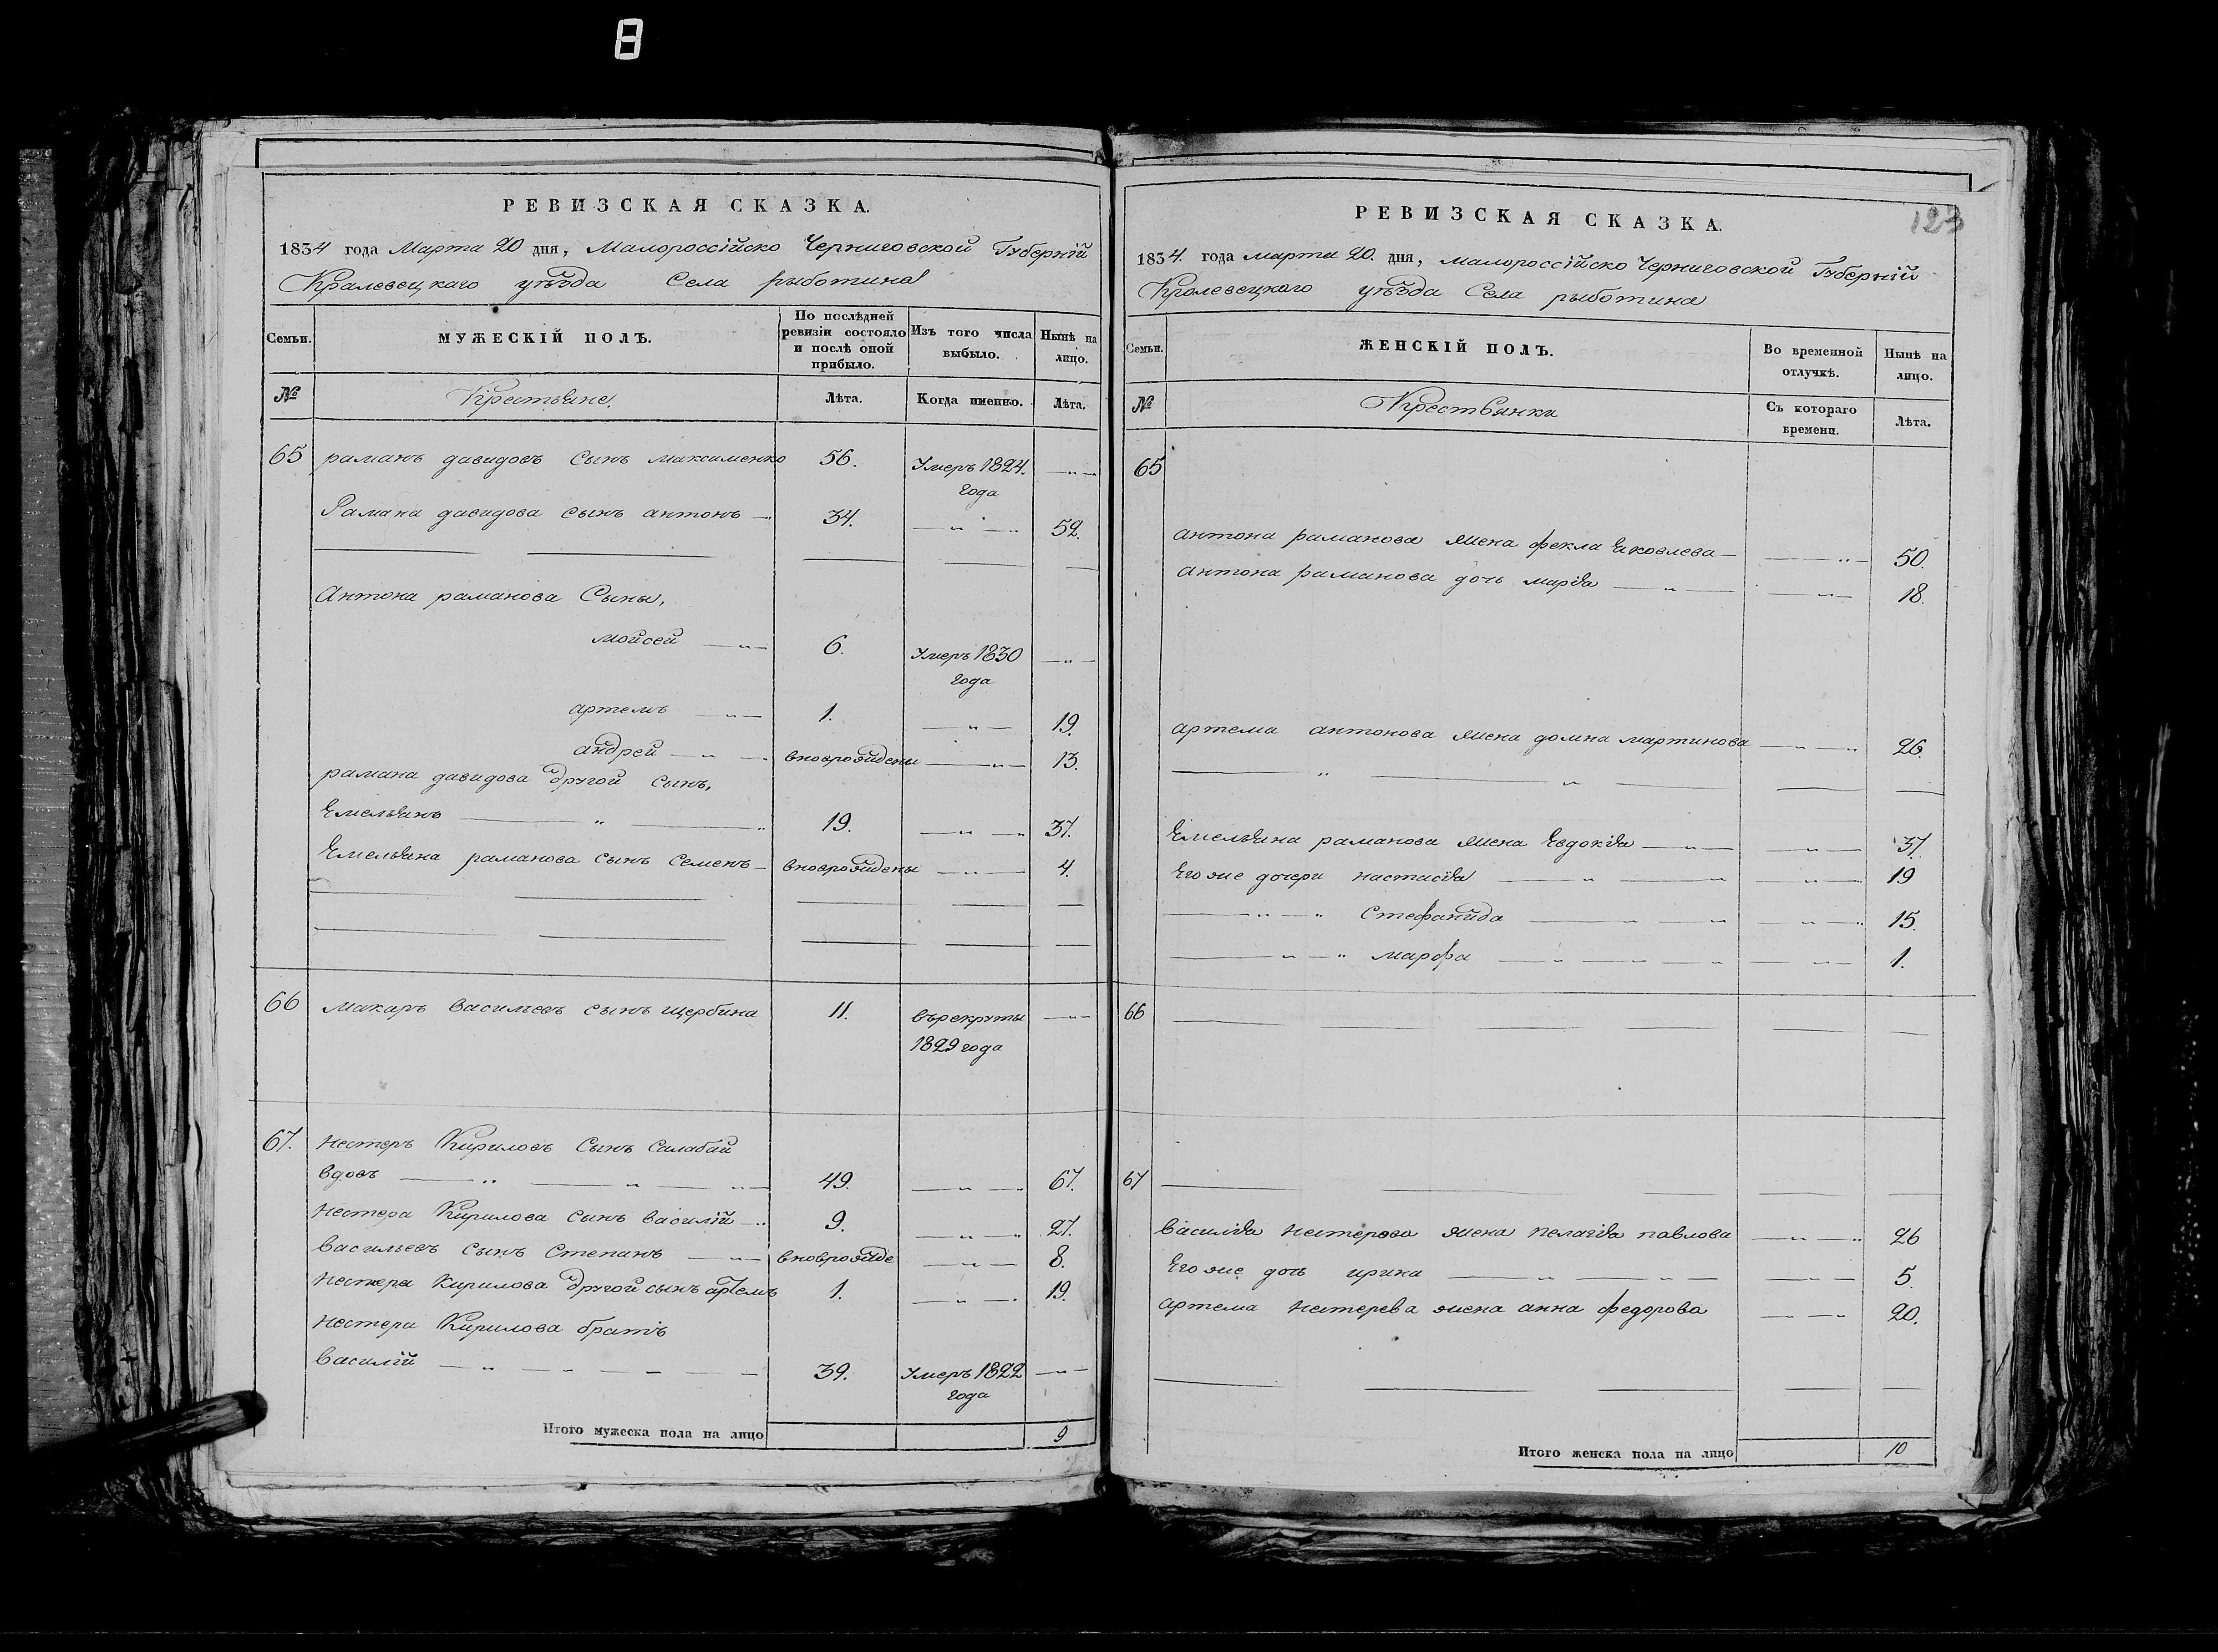 8
РЕВИЗСКАЯ СКАЗКА.
1834 года Марта 20 дня, Малороссійско Черниговской Губерній
Кралевецкаго уѣзда Села рыботина
Семьи. МУЖЕСКІЙ ПОЛЪ. По послѣдней ревизіи состояло и послѣ оной прибыло. Изъ того числа выбыло. Нынѣ на лицо.
№ Крестьяне. Лѣта. Когда именно. Лѣта.
65 раманъ давидовъ сынъ максименко 56. Умеръ 1824. года
Рамана давидова сынъ антонъ 34. 52.
Антона раманова Сыны,
мойсей 6. Умеръ 1830 года
артемъ 1. 19.
андрей вноврождены 13.
рамана давидова другой сынъ,
Емельянъ 19. 37.
Емельяна раманова сынъ Семенъ вноврождены 4.
66 Макаръ васильевъ сынъ щербина 11. върекруты
1829 года
67. Нестеръ Кириловъ Сынъ Салабай
вдовъ 49. 67.
Нестера Кирилова сынъ василій 9. 27.
васильевъ сынъ Степанъ вноврожде 8.
Нестера Кирилова другой сынъ артемъ 1. 19.
Нестера Кирилова братъ
василій 39. Умеръ 1822 года
Итого мужеска пола на лицо 9
123
РЕВИЗСКАЯ СКАЗКА.
1834. года марта 20. дня, малороссійско Черниговской Губерній
Кролевецкаго уѣзда Села рыботина
Семьи. ЖЕНСКІЙ ПОЛЪ. Во временной отлучкѣ. Нынѣ на лицо.
№ Крестьянки Съ котораго времени. Лѣта.
65
антона раманова жена фекла Яковлева 50.
антона раманова дочь марія 18.
артема антонова жена домна мартинова 26.
Емельяна раманова жена Евдокія 37.
Его же дочери настасія 19
Стефанида 15.
марфа 1.
66
67
василія нестерова жена пелагія павлова 26
Его же дочь ирина 5.
артема нестерева жена анна федорова 20.
Итого женска пола на лицо 10